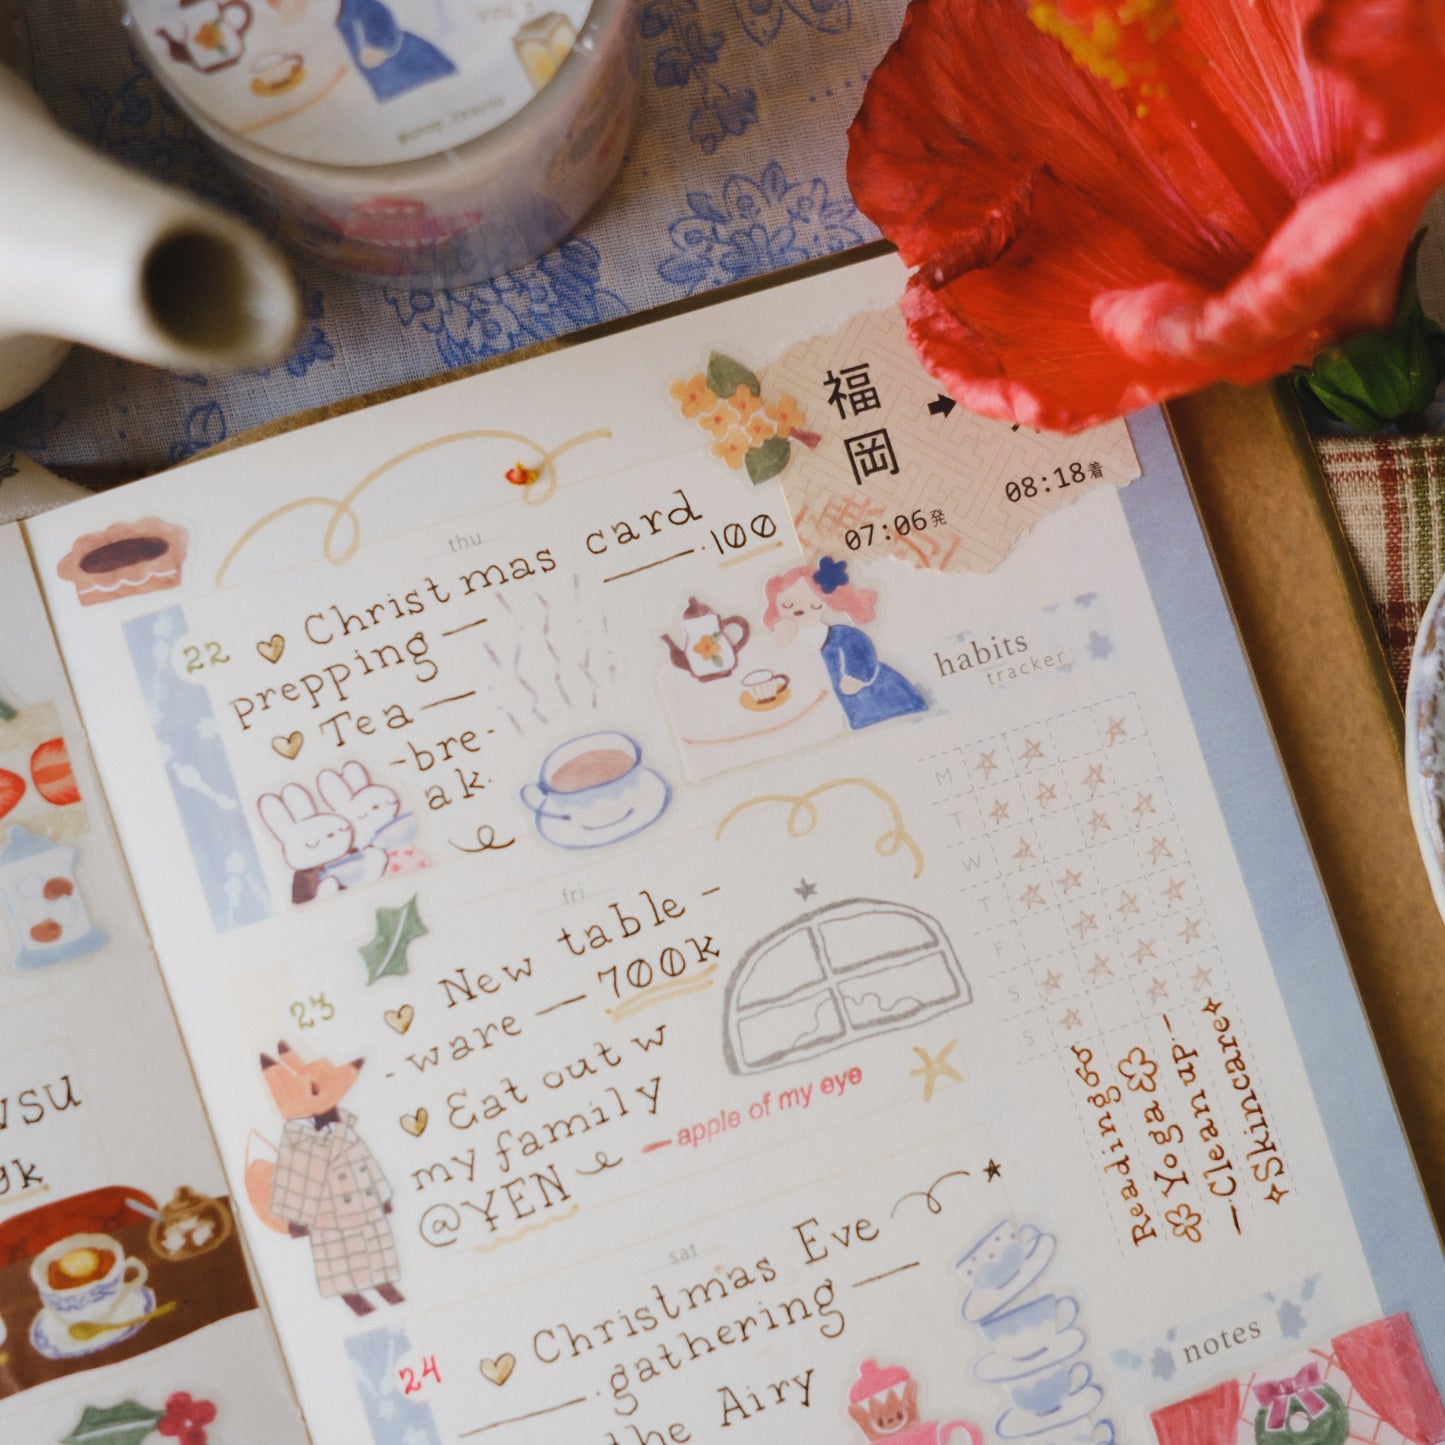 VOL 2
福岡
➡
07:06発
08:18着
thu
22 Christmas card
100
prepping
Tea
-bre-
ak.
fri
23 New table -
- ware — 700k
Eat out w
my family
@YEN
apple of my eye
sat
24 Christmas Eve
gathering
the Airy
habits
tracker
M
T
W
T
F
S
S
Reading
Yoga
Clean up
Skincare
notes